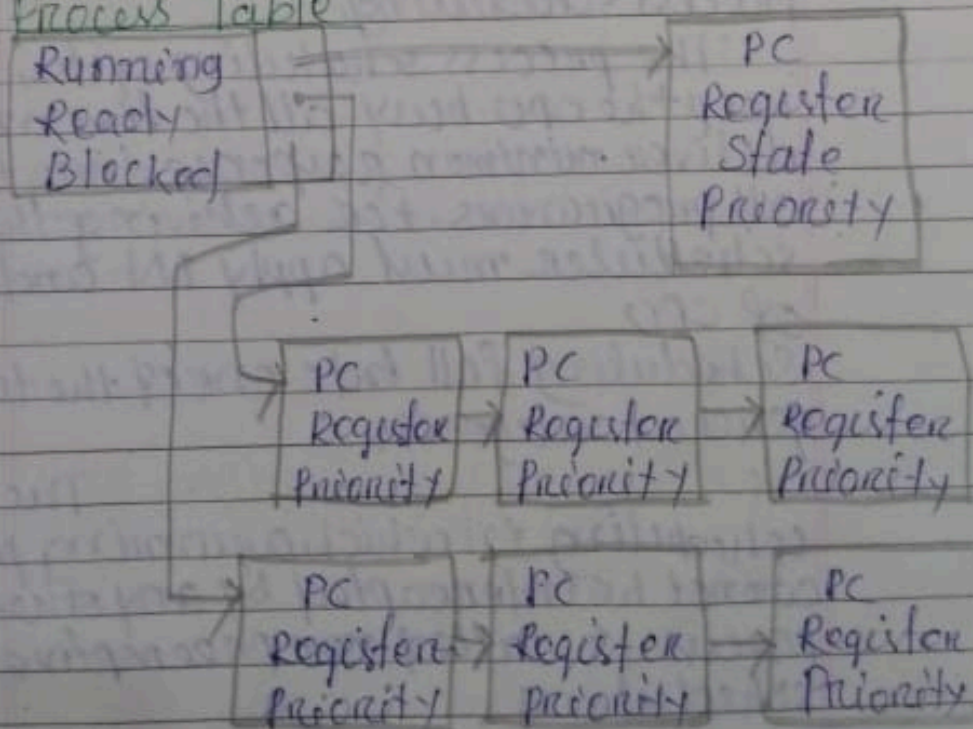 Process Table
Running
Ready
Blocked
PC
Register
State
Priority
PC
Register
Priority
PC
Register
Priority
PC
Register
Priority
PC
Register
Priority
PC
Register
Priority
PC
Register
Priority